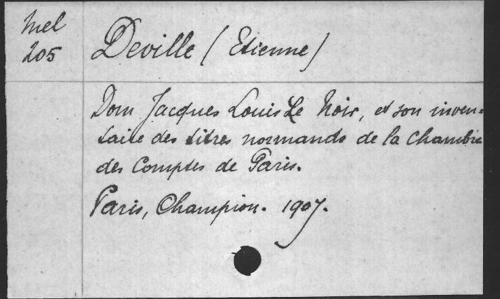 Mel
205
Deville (Etienne)
Dom Jacques Louis Le Noir, et son inven-
taire des titres normands de la Chambre
des Comptes de Paris.
Paris, Champion. 1907.